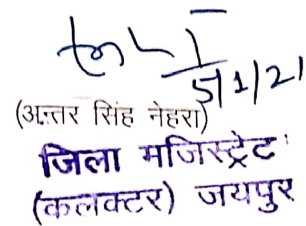 5/1/21
(अन्तर सिंह नेहरा)
जिला मजिस्ट्रेट
(कलक्टर) जयपुर